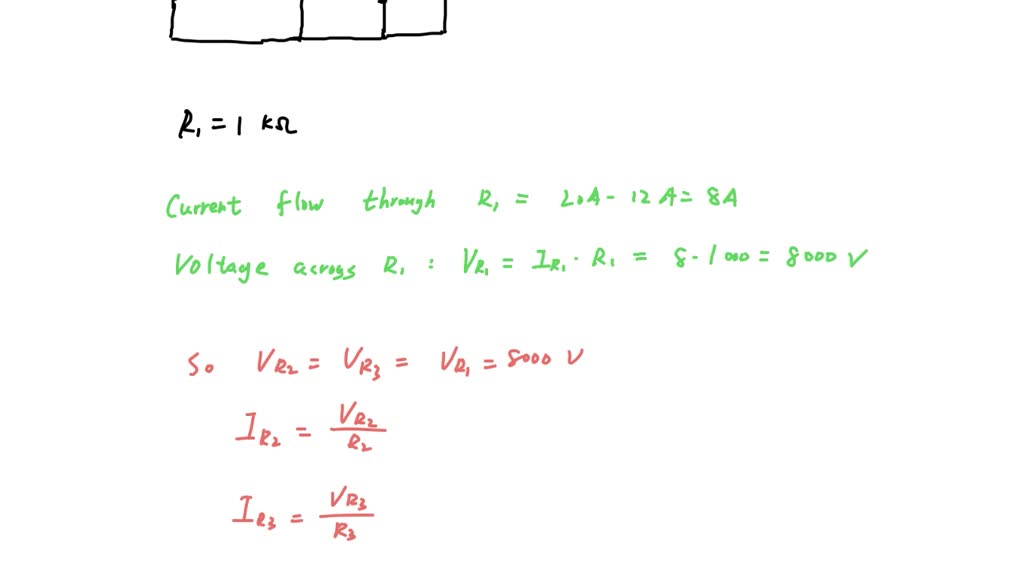 R₁ = 1 kΩ
Current flow through R₁ = 20A - 12A = 8A
Voltage across R₁ : V_R₁ = I_R₁ · R₁ = 8 · 1000 = 8000 V
So V_R₂ = V_R₃ = V_R₁ = 8000 V
I_R₂ = V_R₂ / R₂
I_R₃ = V_R₃ / R₃